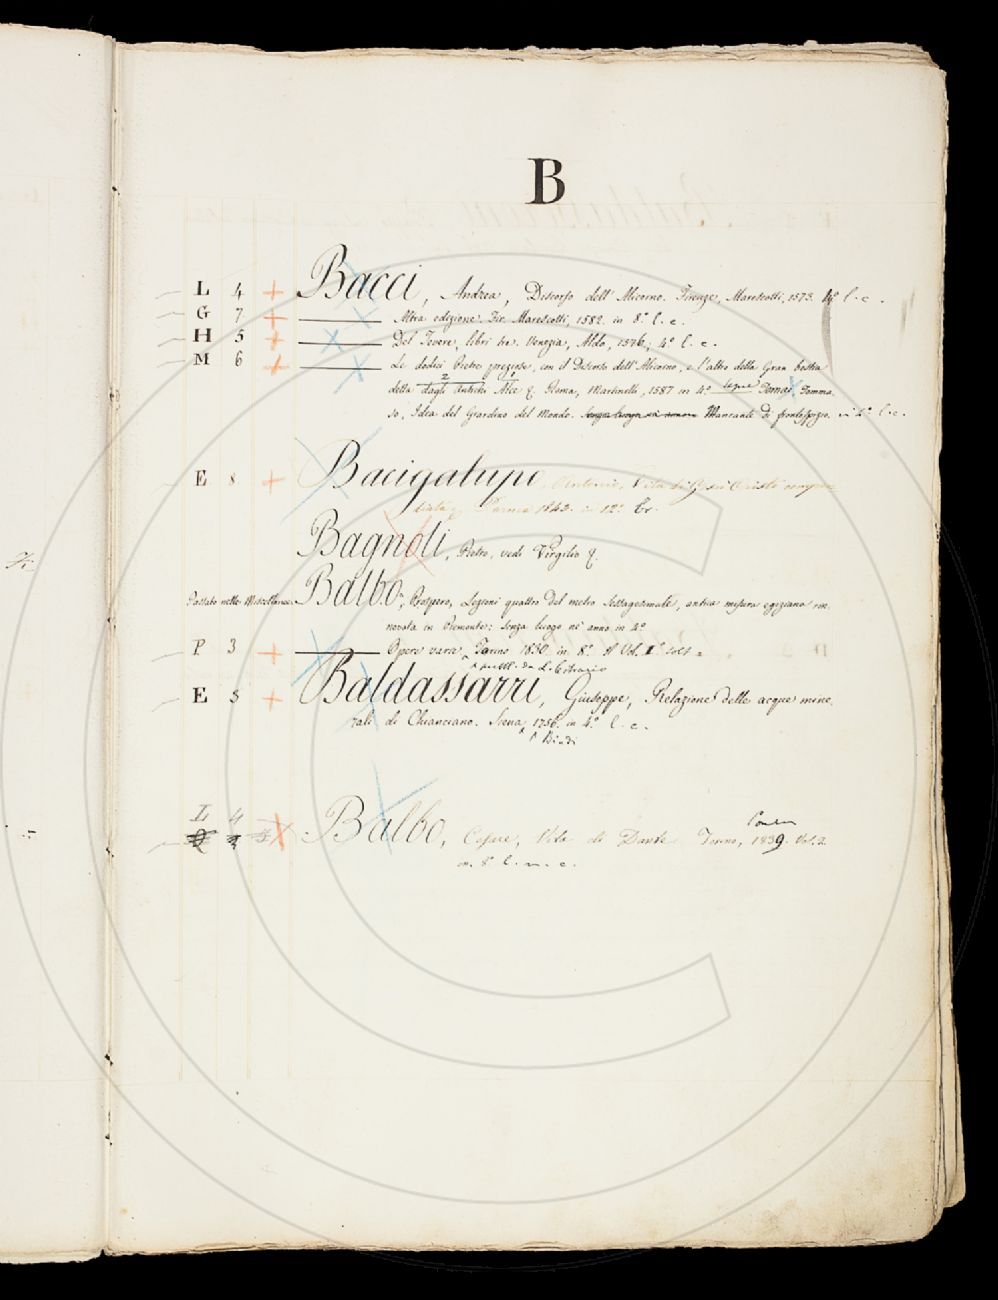 B
L 4 + Bacci, Andrea, Discorso dell' Alicorno. Firenze, Marescotti, 1573. 4° l. c.
G 7 + Altra edizione. Fir. Marescotti, 1582. in 8.° l. c.
H 5 + Del Tevere, libri tre. Venezia, Aldo, 1576; 4° l. c.
M 6 + Le dodici Pietre preziose, con il Discorso dell'Alicorno, e l'altro della Gran bestia
della dagli Antichi Alce &. Roma, Martinelli, 1587 in 4.° segue Tomai, Tomma-
so, Idea del Giardino del Mondo. Mancante di frontespizio. in 4° l. c.
E 8 + Bacigalupo, Antonio, Vita di Gesù Cristo compen-
diata Parma 1842. in 12° br.
Bagnoli, Pietro, vedi Virgilio &.
Passato nelle Miscellanee Balbo, Prospero, Lezioni quattro del metro sessagesimale, antica misura egiziana rin-
novata in Piemonte: senza luogo nè anno in 4°
P 3 + Opere varie, Torino 1830. in 8.° Vol. I.°
presso da Librario
E 5 + Baldassarri, Giuseppe, Relazione delle acque mine-
rali di Chianciano. Siena, 1756. in 4.° l. c.
Bindi
L 4
Balbo, Cesare, Vita di Dante Torino, 1839. Vol. 2.
in 8.° l. m. c.